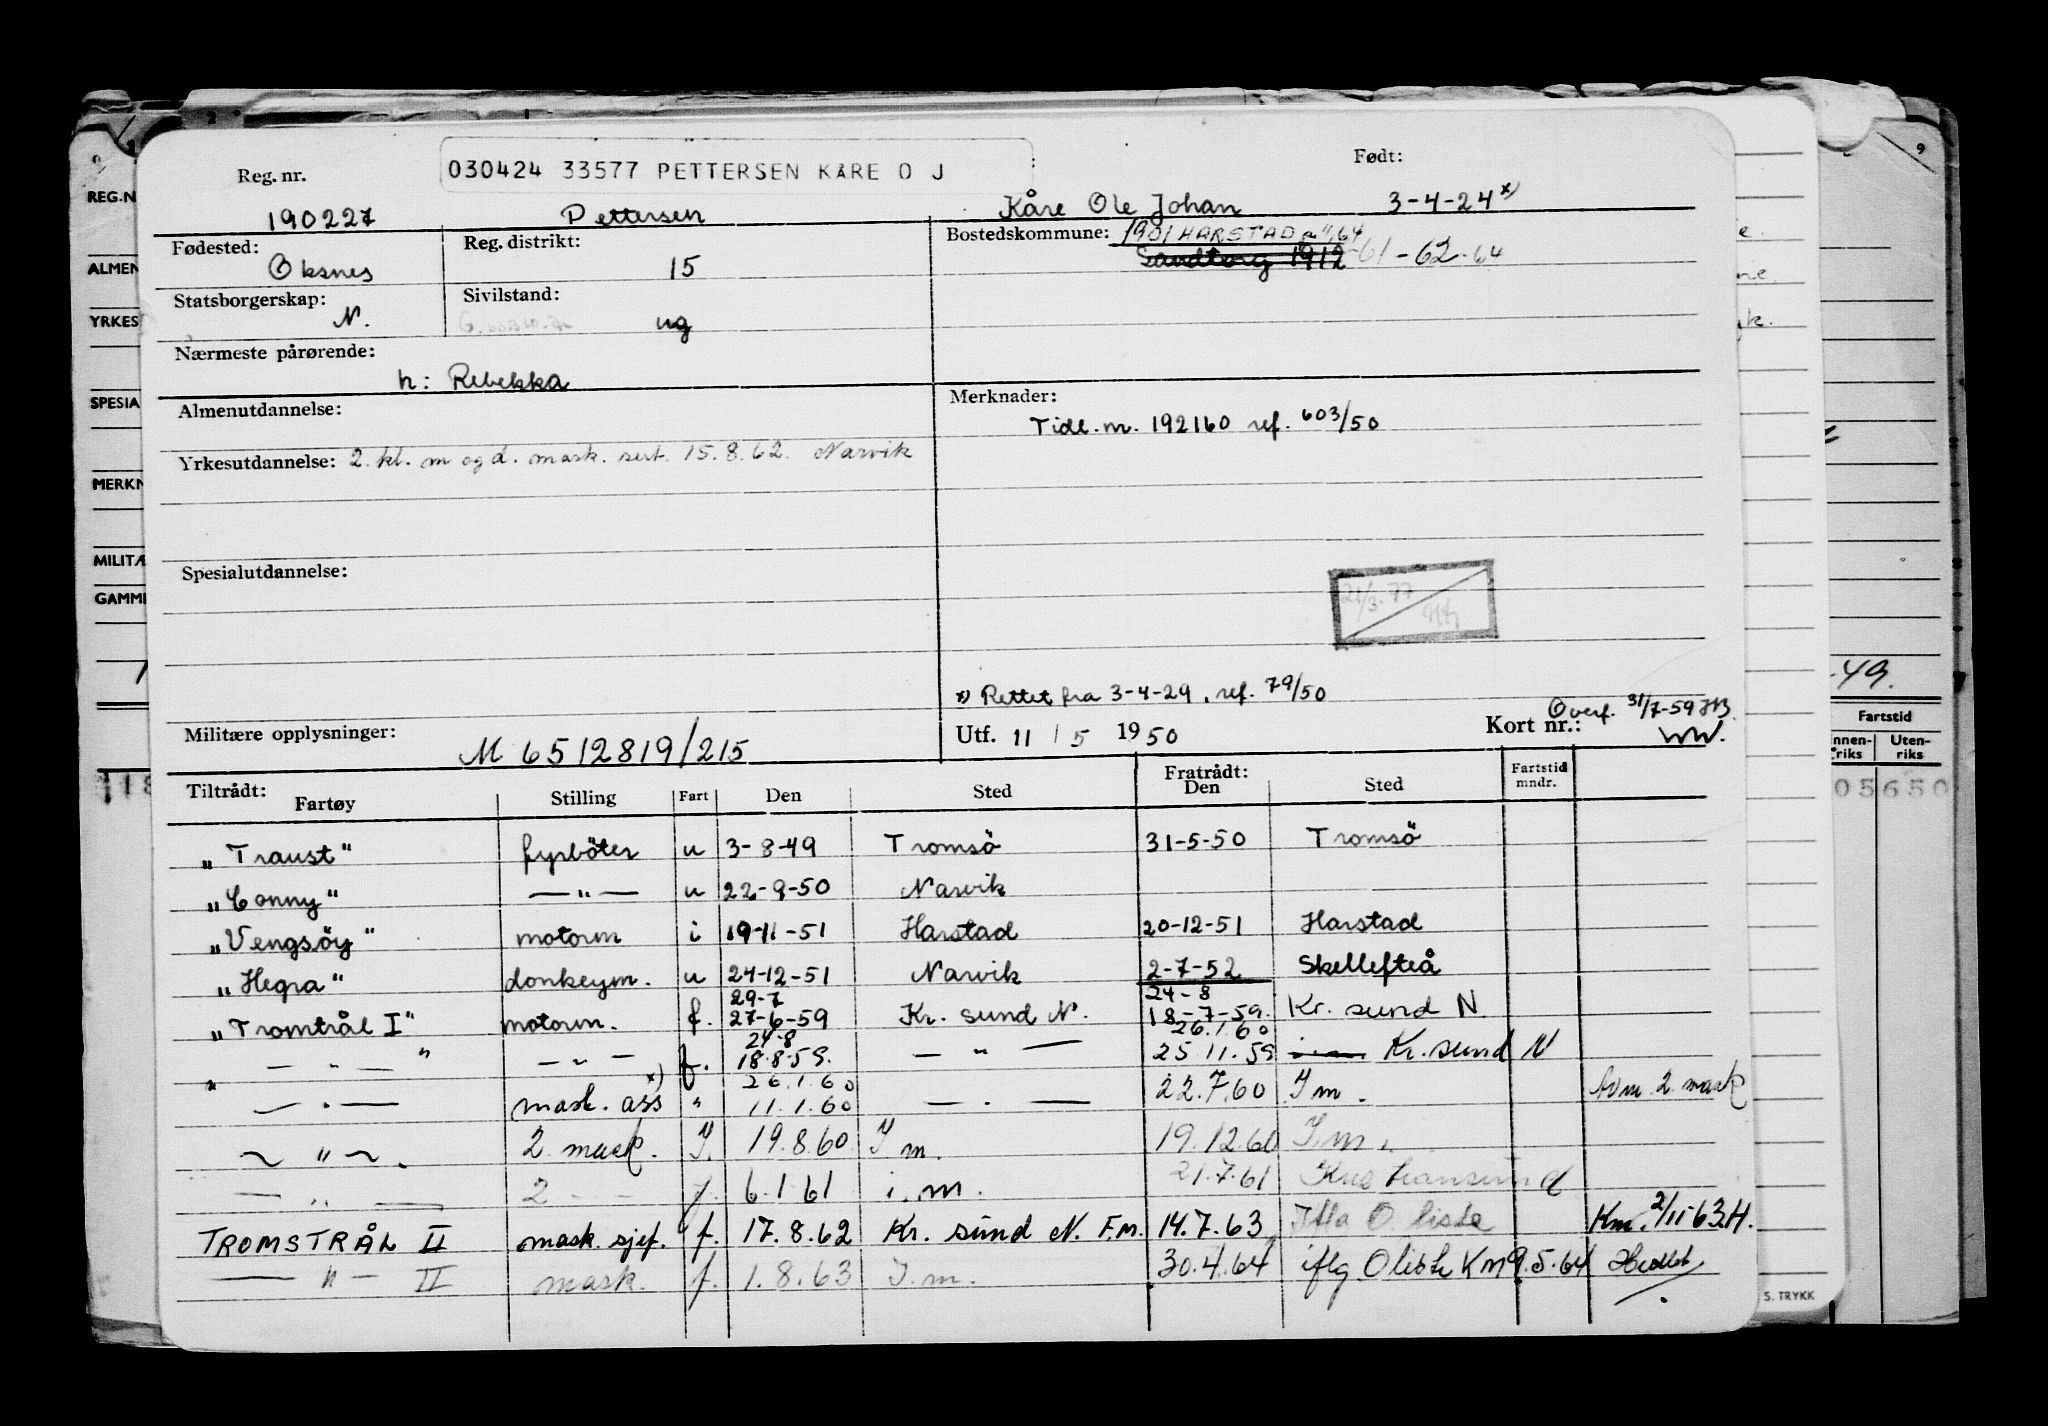 Reg. nr.
030424 33577 PETTERSEN KÅRE O J
Født:
190227 Pettersen Kåre Ole Johan 3-4-24 x)
Fødested: Oksnes
Reg. distrikt: 15
Bostedskommune: 1901 HARSTAD
Sandtorg 1912 -61-62-64
Statsborgerskap: N.
Sivilstand: ug
Nærmeste pårørende:
h: Rebekka
Almenutdannelse:
Merknader:
Tidl. nr. 192160 ref. 603/50
Yrkesutdannelse: 2. kl. m og d. mask. sert. 15.8.62. Narvik
Spesialutdannelse:
21/3.77
x) Rettet fra 3-4-29, ref. 79/50
Militære opplysninger: M 6512819/215
Utf. 11/5 1950
Kort nr.: Overf. 31/7-59
Tiltrådt: Fartøy Stilling Fart Den Sted Fratrådt: Den Sted Fartstid mndr.
"Traust" fyrböter u 3-8-49 Tromsö 31-5-50 Tromsö
"Conny" — " — u 22-9-50 Narvik
"Vengsöy" motorm i 19-11-51 Harstad 20-12-51 Harstad
"Hegra" donkeym. u 24-12-51 Narvik 2-7-52 Skellefteå
29-7 24-8
"Tromtrål I" motorm. f. 27-6-59 Kr. sund N. 18-7-59. Kr. sund N.
24-8 26.1 60
— " — — " — f. 18.8.59. — " — 25.11.59 Kr. sund N
26.1.60
— " — mask. ass x) " 11.1.60 — " — 22.7.60 I m. 2. mask
— " — 2 mask. f. 19.8.60 I m. 19.12.60 I. m.
— " — 2 — f. 6.1 61 i. m. 21.7.61 Kristiansund
TROMSTRÅL II mask. sjef. f. 17.8.62 Kr. sund N. F.m. 14.7.63 Km. 2/11-63.H.
— " — II mask. f. 1.8.63 I. m. 30.4.64 iflg O liste KM 9.5.64
REG.N
ALMEN
YRKES
SPESIA
MERKN
MILITÆ
GAMM
9
-49.
Fartstid
Uten-
riks
05650
S. TRYKK